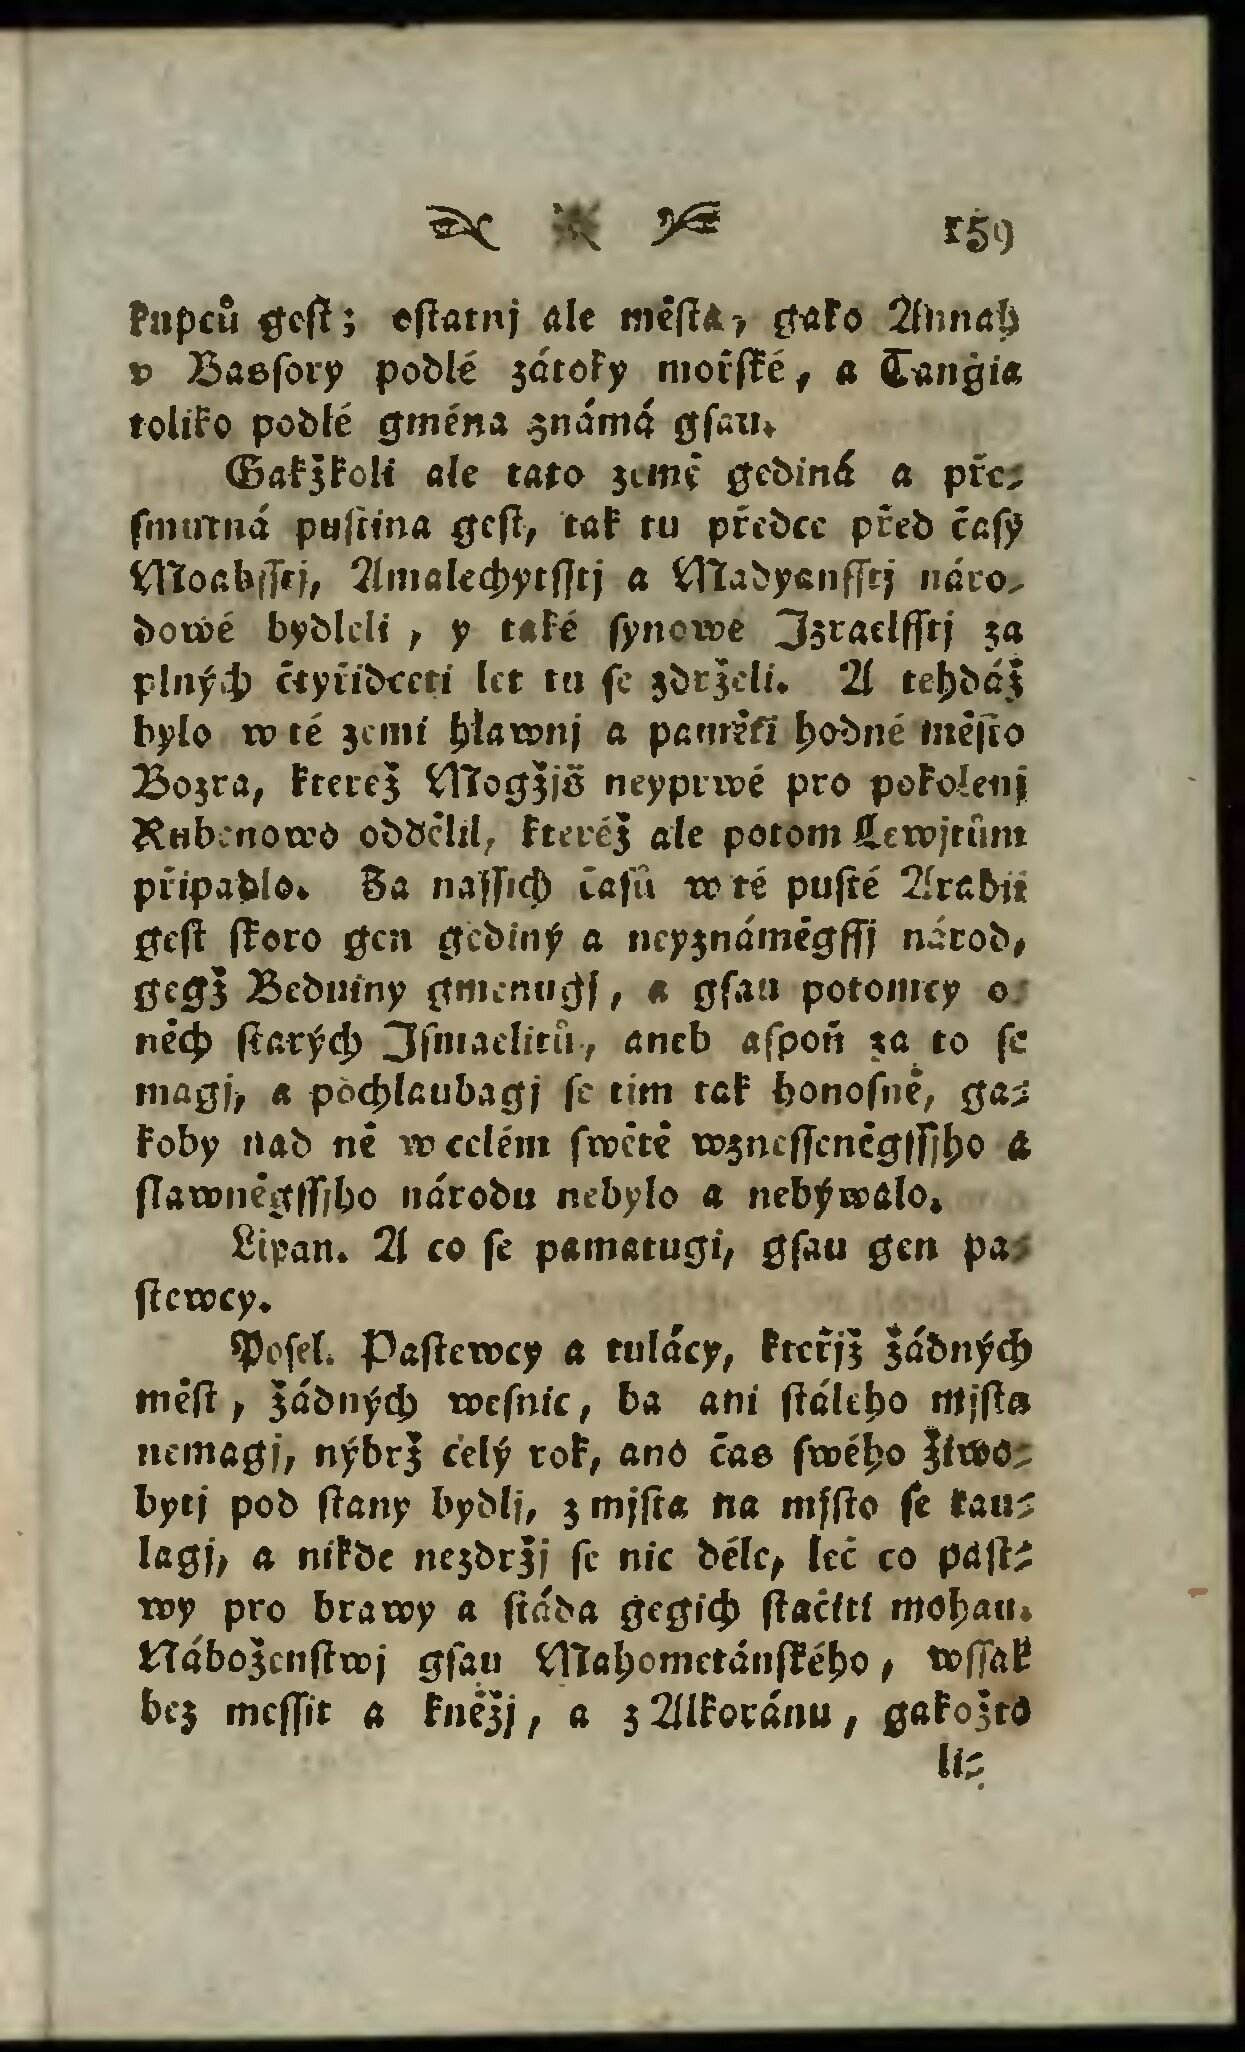 159
kupců gest; ostatnj ale města, gako Annah
v Bassory podlé zátoky mořské, a Tangia
toliko podlé gména známá gsau.
Gakžkoli ale tato země gediná a pře-
smutná pustina gest, tak tu předce před časy
Moabsstj, Amalechytsstj a Madyansstj náro-
dowé bydleli, y také synowé Izraelsstj za
plných čtyřidceti let tu se zdrželi. A tehdáž
bylo w té zemi hlawnj a paměti hodné město
Bozra, kterež Mogžjš neyprwé pro pokolenj
Rubenowo oddělil, kteréž ale potom Lewjtům
připadlo. Za nassich časů w té pusté Arabii
gest skoro gen gediný a neyznáměgssj národ,
gegž Beduiny gmenugj, a gsau potomcy o-
něch starých Ismaelitů, aneb aspoň za to se
magj, a pochlaubagj se tim tak honosně, ga-
koby nad ně w celém swětě wznesseněgssjho a
slawněgssjho národu nebylo a nebýwalo.
Lipan. A co se pamatugi, gsau gen pa-
stewcy.
Posel. Pastewcy a tulácy, kteřjž žádných
měst, žádných wesnic, ba ani stáleho mjsta
nemagj, nýbrž celý rok, ano čas swého žiwo-
bytj pod stany bydlj, z mjsta na mjsto se tau-
lagj, a nikde nezdržj se nic déle, leč co past-
wy pro brawy a stáda gegich stačiti mohau.
Náboženstwj gsau Mahometánského, wssak
bez messit a kněžj, a z Alkoránu, gakožto
li-